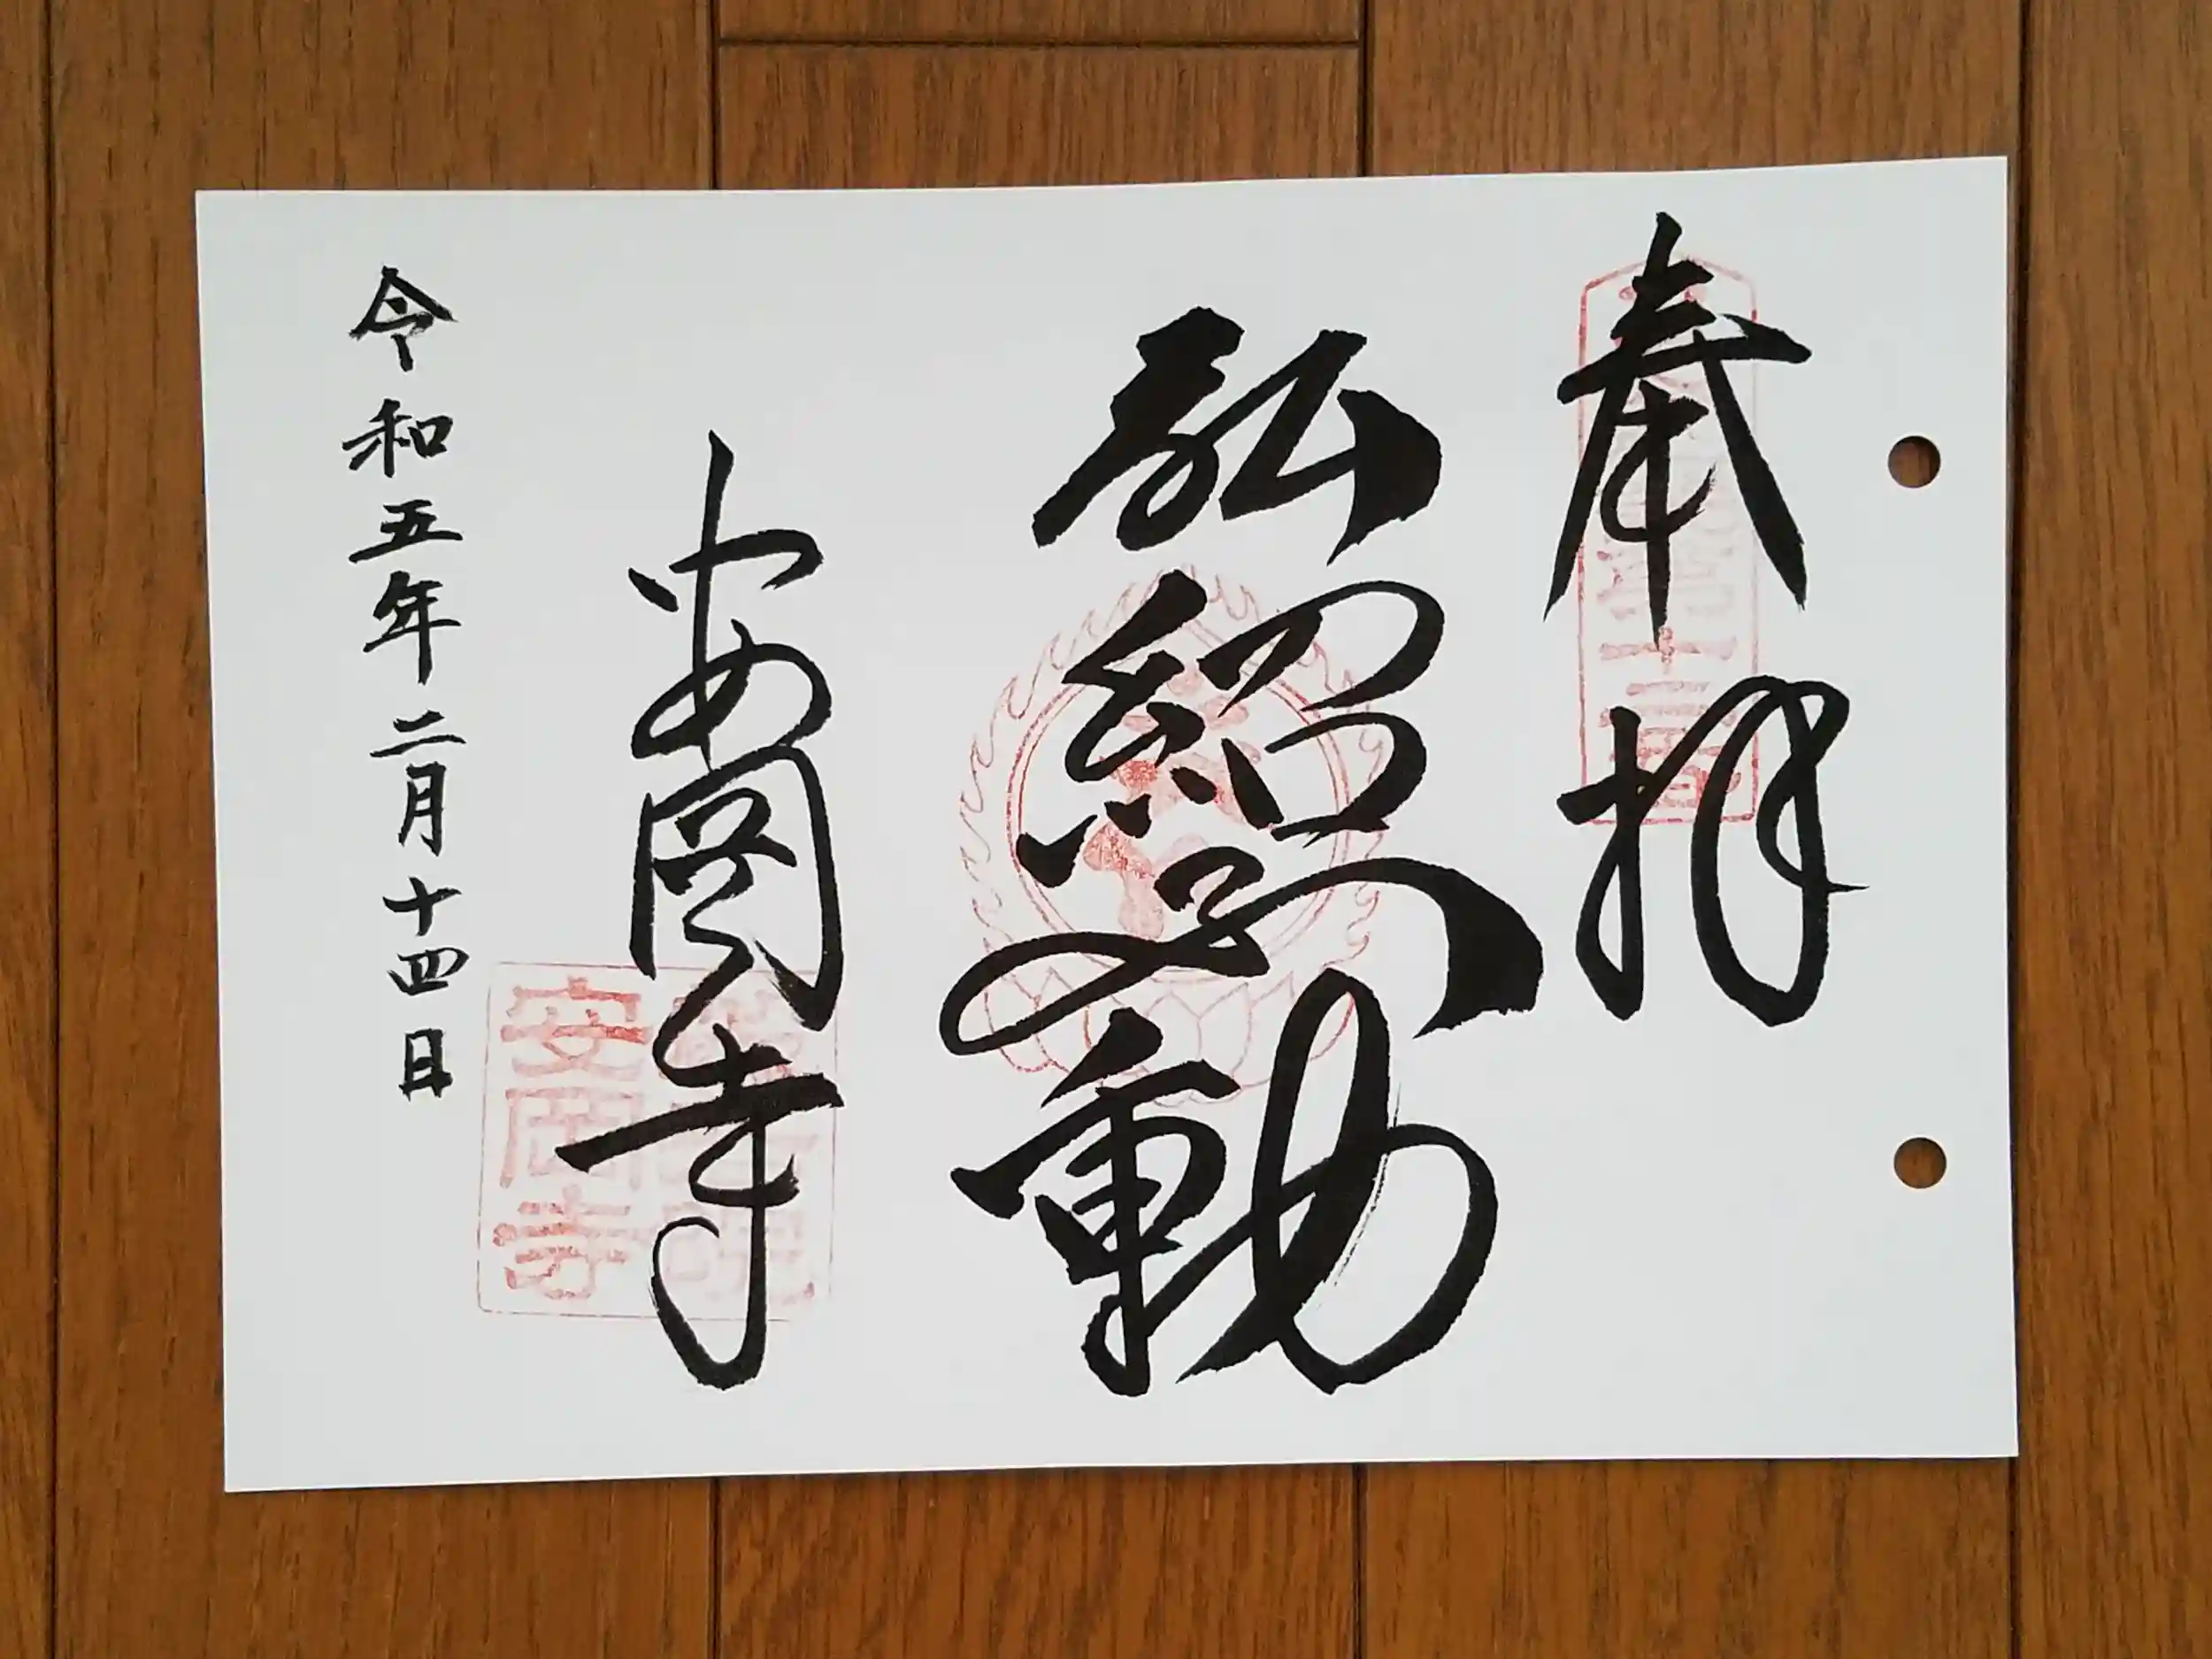 奉拝
弘紹不動
安岡寺
安岡寺
令和五年二月十四日